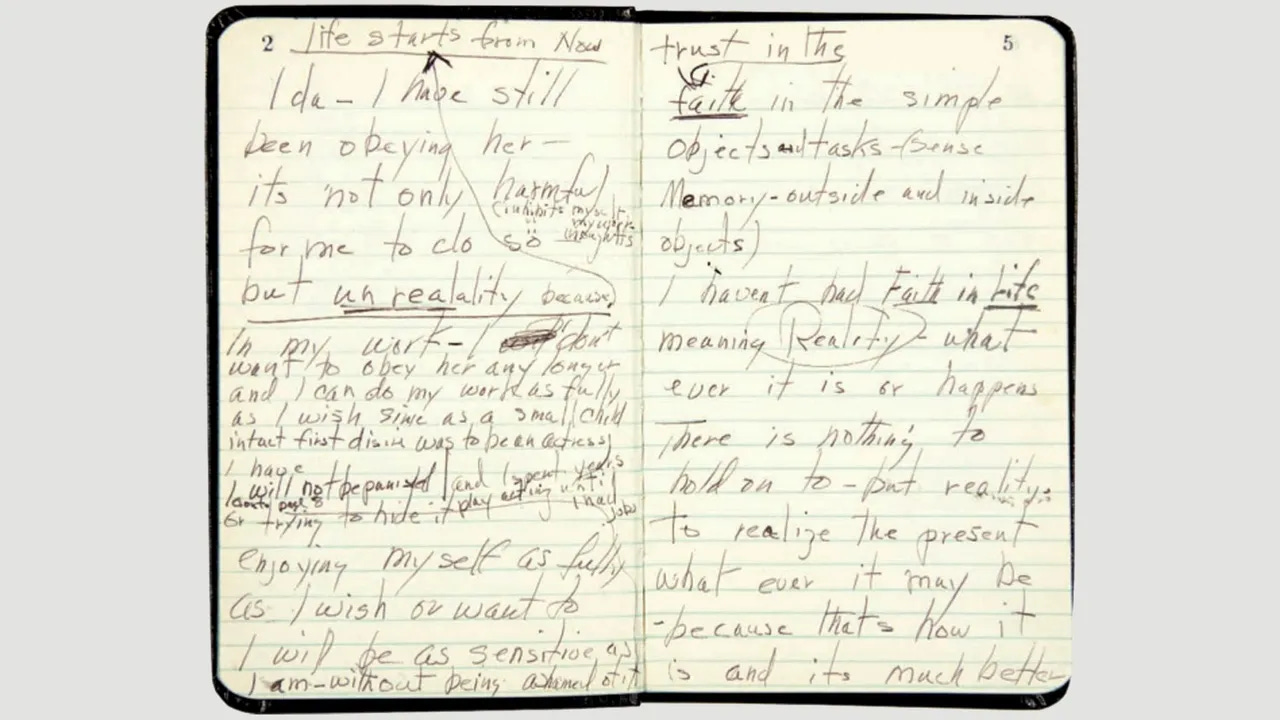 2
life starts from Now
Ida - I have still
been obeying her -
its not only harmful
for me to do so
(inhibits my
thoughts
but unrealality because)
In my work - I don't
want to obey her any longer
and I can do my work as fully
as I wish since as a small child
intact first disire was to be an actress)
I have
I will not be punished and I spent years
play acting until
I had
jobs
or trying to hide it
enjoying myself as fully
as I wish or want to
I will be as sensitive as
I am - without being ashamed of it
5
trust in the
faith in the simple
objects and tasks - (Sense
Memory - outside and inside
objects)
I havent had Faith in Life
meaning Reality - what
ever it is or happens
There is nothing to
hold on to - but reality
To realize the present
what ever it may be
- because thats how it
is and its much better